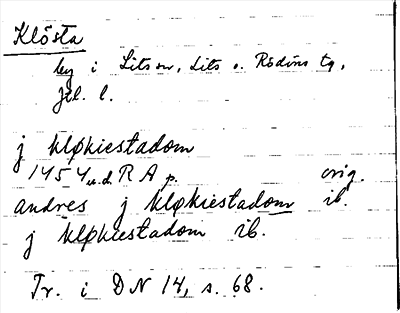 Klösta
by i Lits sn, Lits o. Rödöns tg,
Jtl. l.
j kløkiestadom
1454 u.d. R A p. orig.
andres j kløkiestadom ib.
j kløkiestadom ib.
Tr. i DN 14, s. 68.